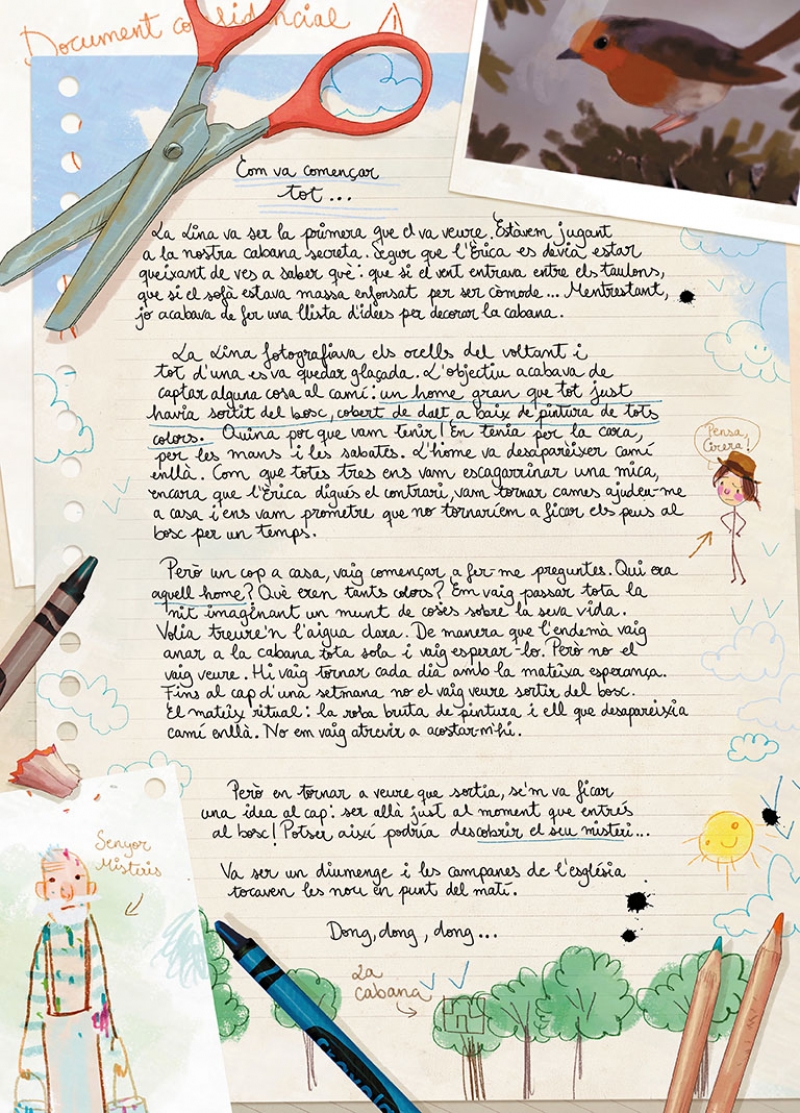 Document confidencial
Com va començar
tot...
La Lina va ser la primera que el va veure. Estàvem jugant
a la nostra cabana secreta. Segur que l'Erica es devia estar
queixant de ves a saber què: que si el vent entrava entre els taulons,
que si el sofà estava massa enfonsat per ser còmode... Mentrestant,
jo acabava de fer una llista d'idees per decorar la cabana.
La Lina fotografiava els ocells del voltant i
tot d'una es va quedar glaçada. L'objectiu acabava de
captar alguna cosa al camí: un home gran que tot just
havia sortit del bosc, cobert de dalt a baix de pintura de tots
colors. Quina por que vam tenir! En tenia per la cara,
per les mans i les sabates. L'home va desaparèixer camí
enllà. Com que totes tres ens vam escagarrinar una mica,
encara que l'Erica digués el contrari, vam tornar cames ajudeu-me
a casa i ens vam prometre que no tornaríem a ficar els peus al
bosc per un temps.
Pensa,
Cirera!
Però un cop a casa, vaig començar a fer-me preguntes. Qui era
aquell home? Què eren tants colors? Em vaig passar tota la
nit imaginant un munt de coses sobre la seva vida.
Volia treure'n l'aigua clara. De manera que l'endemà vaig
anar a la cabana tota sola i vaig esperar-lo. Però no el
vaig veure. Hi vaig tornar cada dia amb la mateixa esperança.
Fins al cap d'una setmana no el vaig veure sortir del bosc.
El mateix ritual: la roba bruta de pintura i ell que desapareixia
camí enllà. No em vaig atrevir a acostar-m'hi.
Però en tornar a veure que sortia, se'm va ficar
una idea al cap: ser allà just al moment que entrés
al bosc! Potser així podria descobrir el seu misteri...
Va ser un diumenge i les campanes de l'església
tocaven les nou en punt del matí.
Dong, dong, dong...
Senyor
Misteris
La
cabana